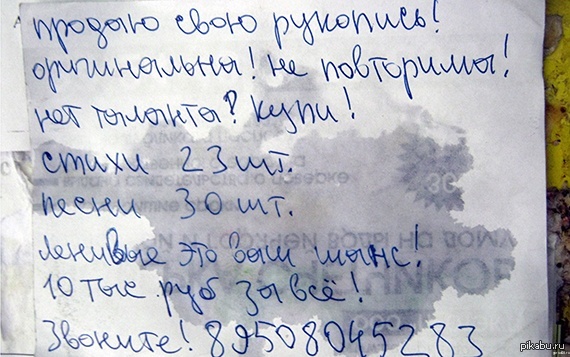 продаю свою рукопись!
оригинальны! не повторимы!
нет таланта? купи!
стихи 23 шт.
песни 30 шт.
ленивые это ваш шанс!
10 тыс руб за всё!
Звоните! 89508045283
pikabu.ru